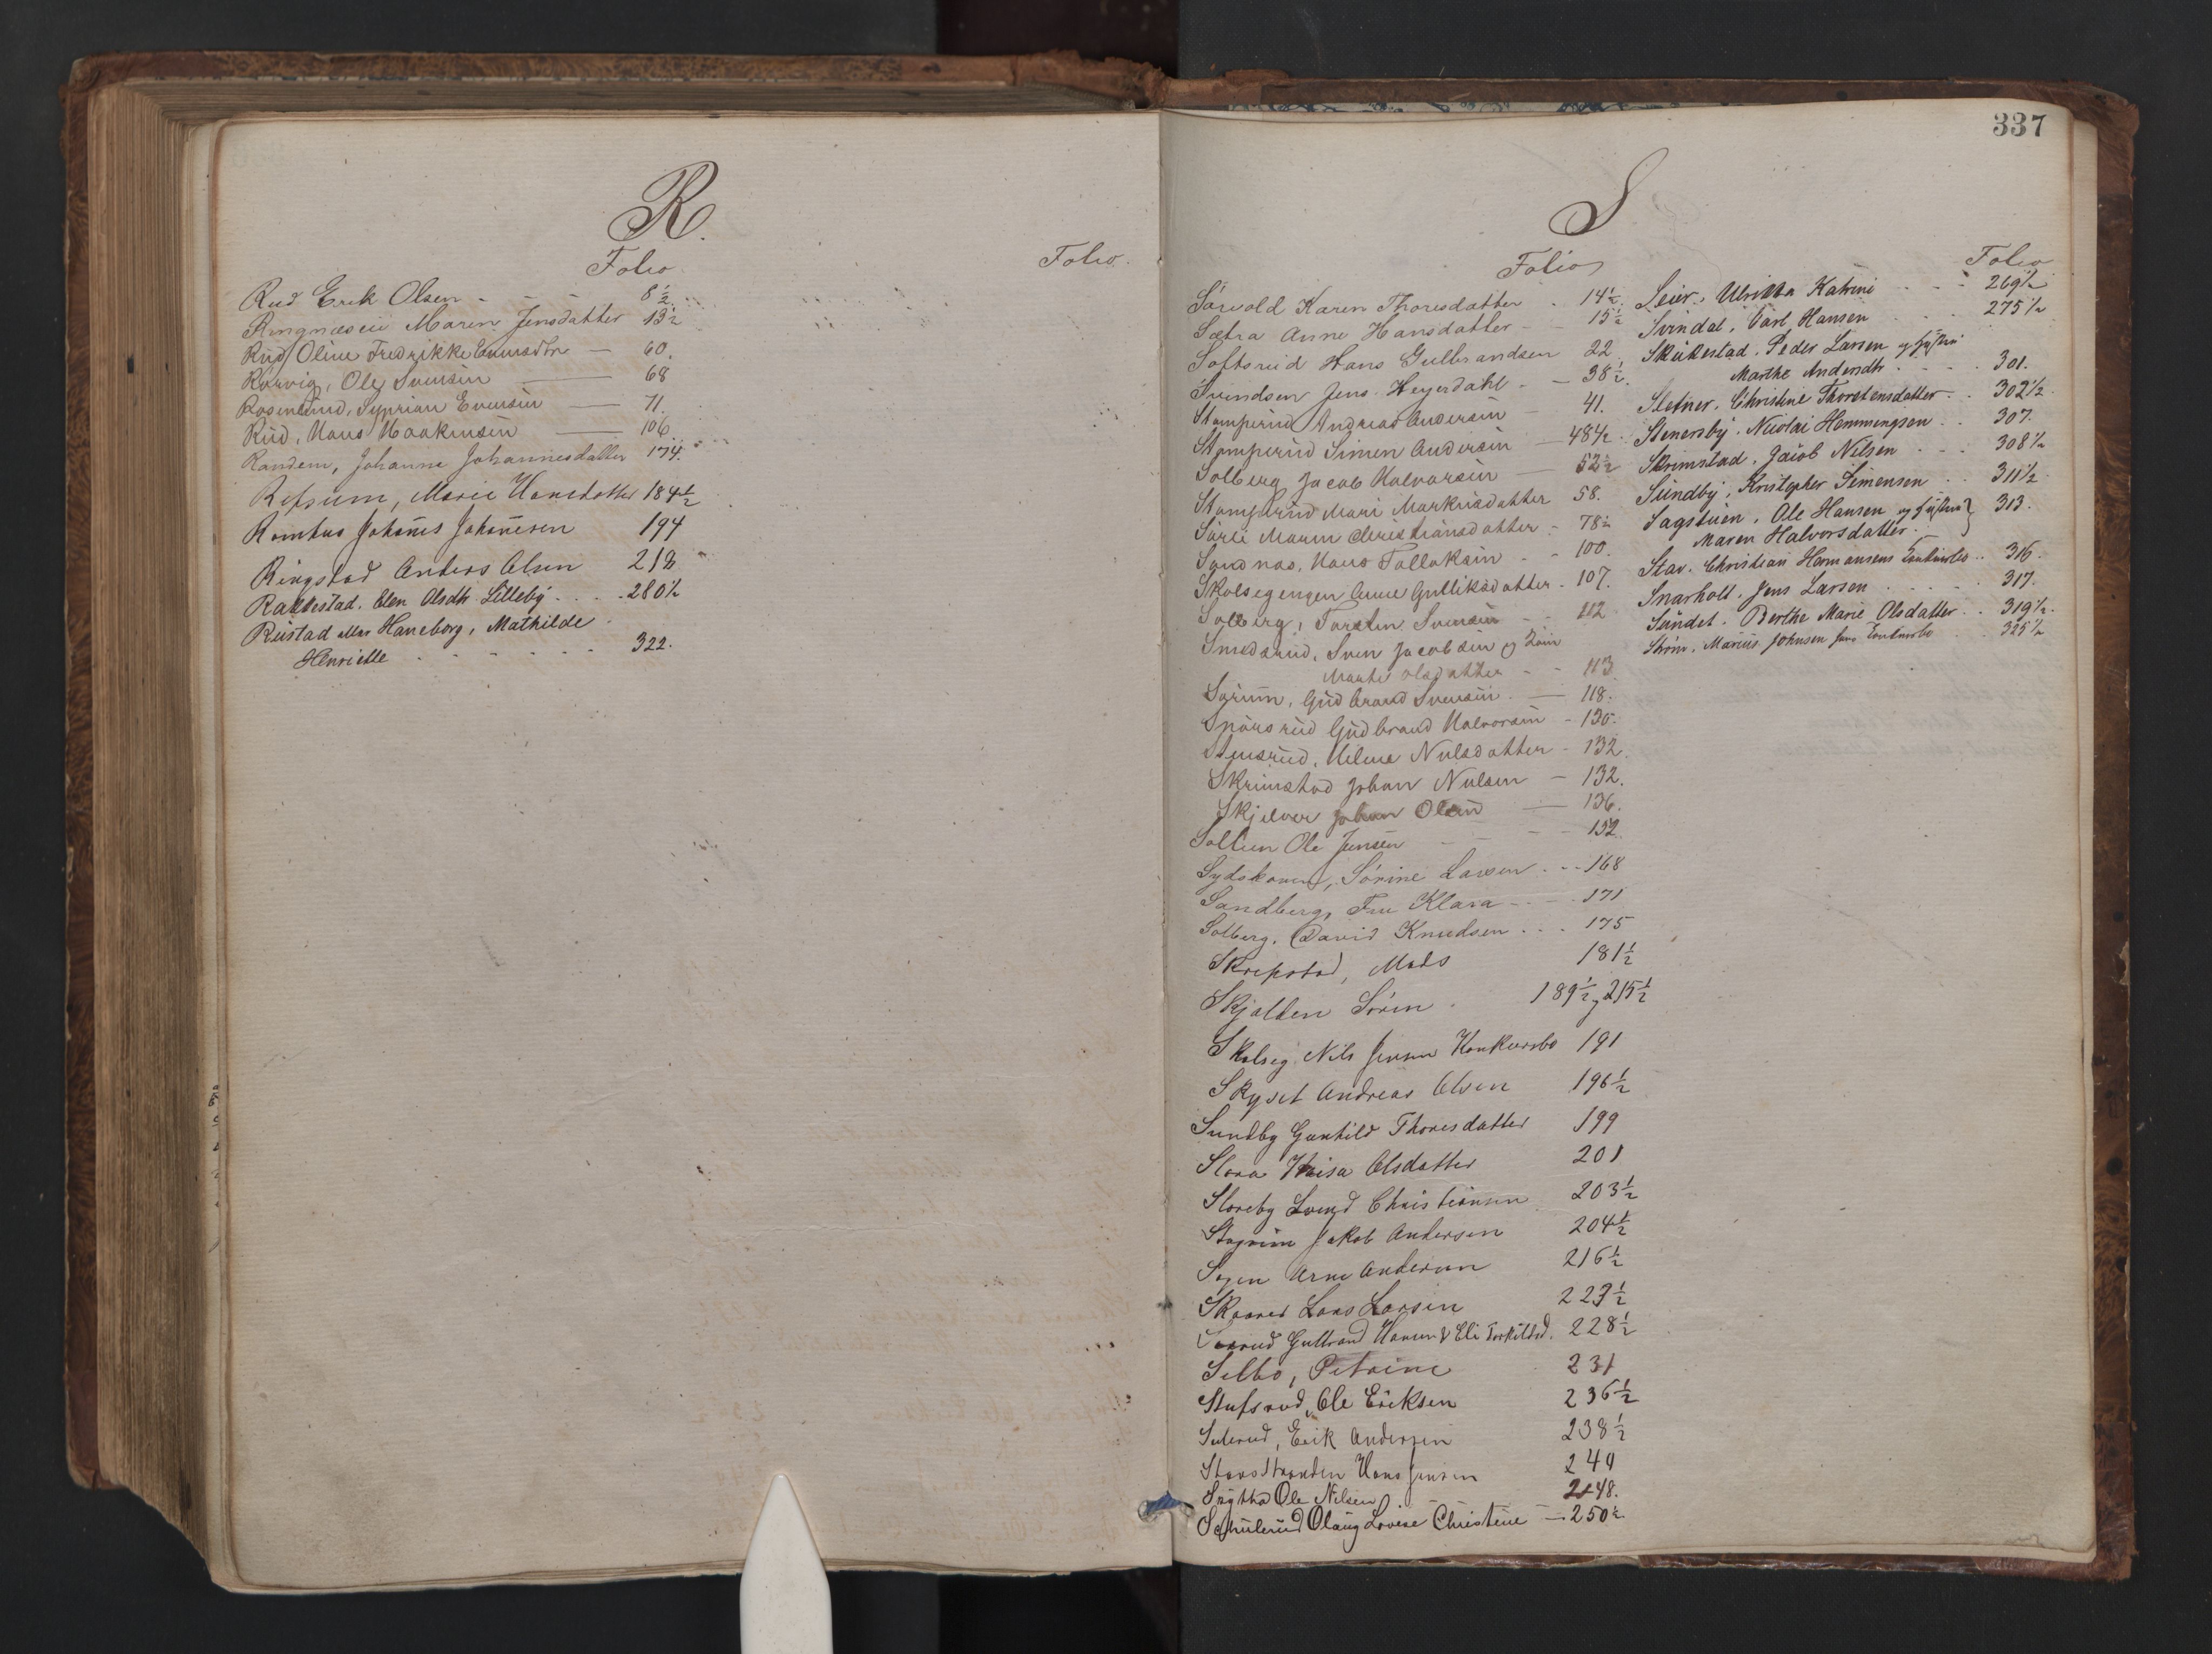 R.
Folio.
Folio.
Rud Erik Olsen - - - 8½.
Ringnæseie Maren Jensdatter 13½
Rud, Oline Fredrikke Evensdtr — 60.
Rörvig, Ole Svensen — 68
Rosenlund, Syprian Evensen — 71.
Rud, Hans Haakensen — 106
Randem, Johanne Johannesdatter 174.
Refsum, Marie Hansdatter 184½
Romhus Johanes Johanesen 194
Ringstad Anders Olsen 218
Rakkestad. Elen Olsdtr Lilleby . . . 280½
Rustad eller Haneborg, Mathilde
Henriette . - - - - - 322.
337
S
Folio
Sörvold Karen Thoresdatter . 14½.
Sætra Anne Hansdatter - - 15½
Softsrud Hans Gulbrandsen 22
Svindsen Jens Heyerdahl - - 38½.
Stomperud Andreas Andersen - 41.
Stomperud Simen Andersen — 48½
Solberg Jacob Halvorsen — 52½
Stomperud Mari Markusdatter 58.
Sörli Maren Christiansdatter - 78½
Sandnæs, Hans Tollaksen - - 100.
Skolsegengen Anne Gulliksdatter - 107.
Solberg, Torsten Svensen - - 112
Smedsrud, Sven Jacobsen og Kone
Marte Olsdatter - - 113
Sörum, Gudbrand Svensen. — 118.
Spörsrud Gudbrand Halvorsen - 130.
Stensrud, Helene Nilsdatter - 132.
Skrimstad Johan Nilsen — 132.
Skjelver Johan Olsen — 136.
Sollien Ole Jensen - - - - 152
Sydskoven, Sörine Larsen . - - 168
Sandberg, Fru Klara - - - . 171
Solberg, David Knudsen . . . 175
Skrepstad, Mads 181½
Skjolden Sören . 189½, 215½
Skolseg Nils Jensen Konkursbo 191
Skyset Andreas Olsen 196½
Sundby Gunhild Thoresdatter 199
Slora Olsdatter 201
Sloreby Svend Christiansen 203½
Jakob Andersen 204½
Arne Andersen 216½
Lars Larsen 223½
Gulbrand Hansen & Eli Torkildsd. 228½
Selbo, Petrine 231
Stufsrud, Ole Eriksen 236½
Sulerud, Erik Andersen 238½
Storstranden Hans Jensen 244
Ole Nilsen - 248.
Schulerud Olaug Lovise Christine — 250½
Folio
Seier, Ulrikka Katrine . - - 269½
Svindal, Carl Hansen . . . 275½
Skukestad, Peder Larsen og Hustru
Marthe Andersdtr . . . . 301.
Sletner, Christine Thorstensdatter . . 302½
Stenersby, Nicolai Hemmingsen . . 307.
Skrimstad, Jacob Nilsen . . . 308½
Sundby, Kristopher Simensen . . 311½
Sagstuen, Ole Hansen og Hustru } 313.
Maren Halvorsdatter.
Stav. Christian Hermansens Konkursbo . . 316.
Snarholt, Jens Larsen . . . . 317.
Sundet. Berthe Marie Olsdatter . . 319½.
Ström, Marius Johnsen Konkursbo . 325½